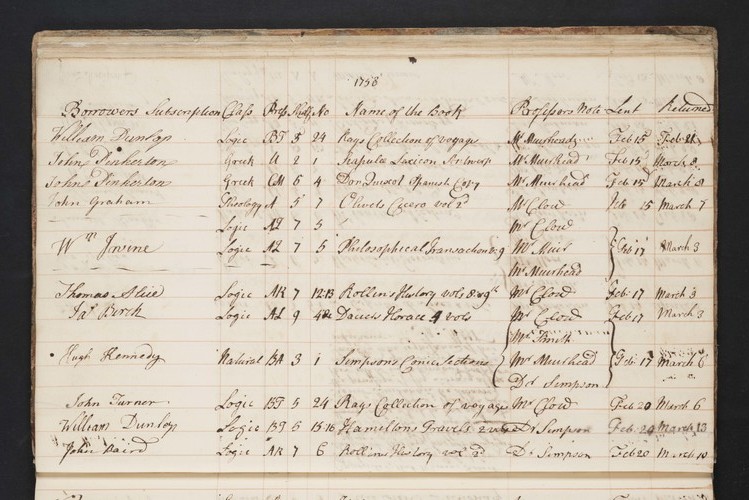 1758
Borrowers Subscription Class Press Shelf No Name of the Book Professors Note Lent Returned
William Dunlop Logic BT 5 24 Rays Collection of voyage Mr Muirhead Feb 15 Feb 21
John Pinkerton Greek 2 1 Lexicon Mr Muirhead Feb 15 March 8
John Pinkerton Greek 6 4 Don Quixot Spanish Mr Muirhead Feb 15 March 8
John Graham Theology A 5 7 Olivets Cicero vol 2d Mr Clow Feb 15 March 7
Logic AL 7 5 Mr Clow
Wm Irvine Logic AL 7 5 Philosophical Transactions 9 Mr Muir Feb 17 March 3
Mr Muirhead
Thomas Logic AK 7 12 13 Rollins History vols 8 & 9th Mr Clow Feb 17 March 3
Ja. Birch Logic AL 9 Horace 4 vols Mr Clow Feb 17 March 3
Mr Smith
Hugh Kennedy Natural BA 3 1 Simpsons Conic Sections Mr Muirhead Feb 17 March 6
Dr Simpson
John Turner Logic BT 5 24 Rays Collection of voyage Mr Clow Feb 20 March 6
William Dunlop Logic BT 6 15 16 Hameltons Travels 2 vols Dr Simpson Feb 20 March 13
John Baird Logic AK 7 6 Rollins History vol 2d Dr Simpson Feb 20 March 10